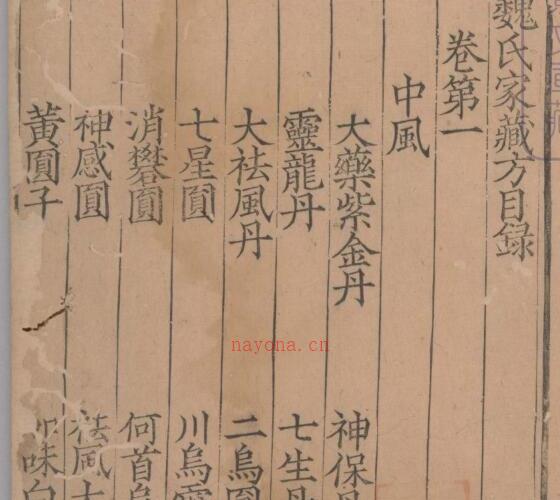 魏氏家藏方目録
卷第一
中風
大藥紫金丹 神保丹
靈龍丹 七生丹
大祛風丹 二烏圓
七星圓 川烏
消礬圓 何首烏
神感圓 祛風
黃圓子 味白
nayona.cn